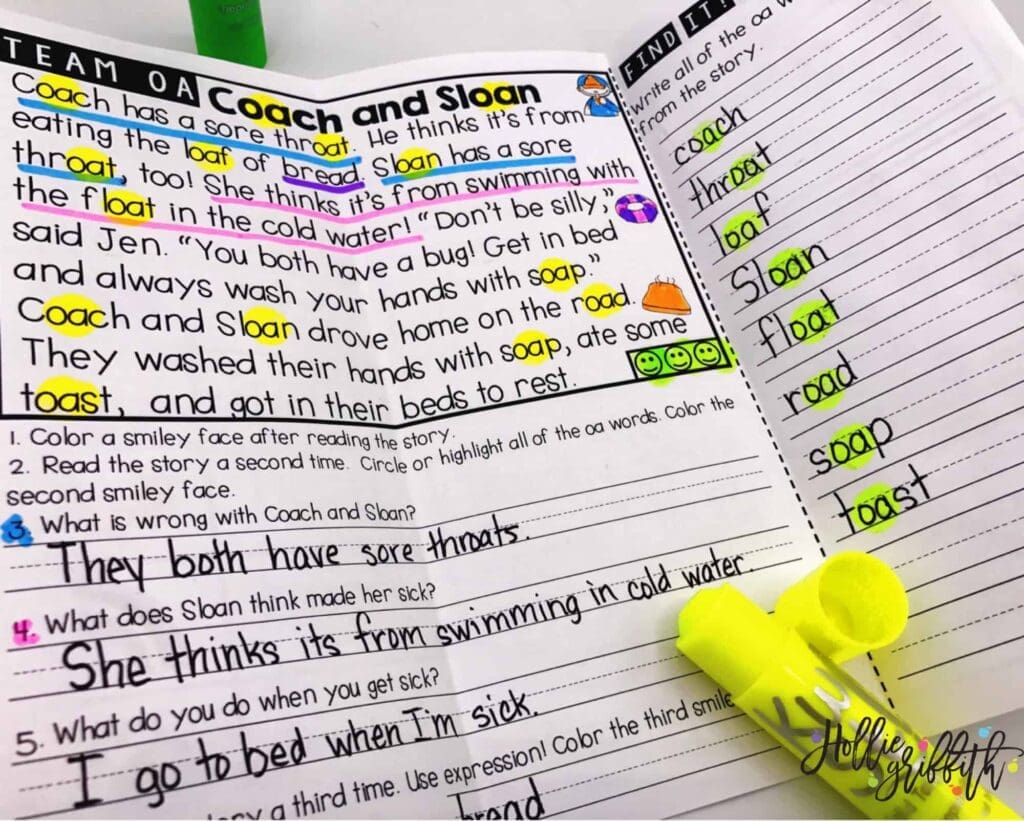 TEAM OA
Coach and Sloan
Coach has a sore throat. He thinks it's from
eating the loaf of bread. Sloan has a sore
throat, too! She thinks it's from swimming with
the float in the cold water! "Don't be silly,"
said Jen. "You both have a bug! Get in bed
and always wash your hands with soap."
Coach and Sloan drove home on the road.
They washed their hands with soap, ate some
toast, and got in their beds to rest.
1. Color a smiley face after reading the story.
2. Read the story a second time. Circle or highlight all of the oa words. Color the
second smiley face.
3. What is wrong with Coach and Sloan?
They both have sore throats.
4. What does Sloan think made her sick?
She thinks its from swimming in cold water.
5. What do you do when you get sick?
I go to bed when I'm sick.
a third time. Use expression! Color the third smile
bread
FIND IT!
Write all of the oa
from the story.
coach
throat
loaf
Sloan
float
road
soap
toast
Hollie
griffith